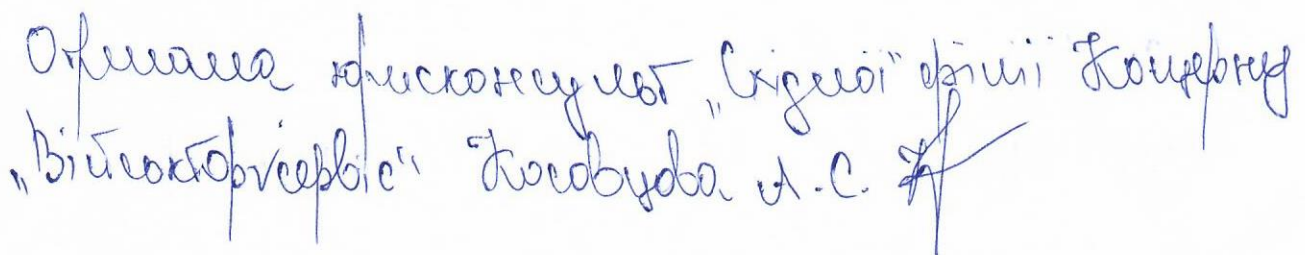 Отримала юрисконсульт „Східної" філії Концерну
„Військторгсервіс" Косовцова А.С.